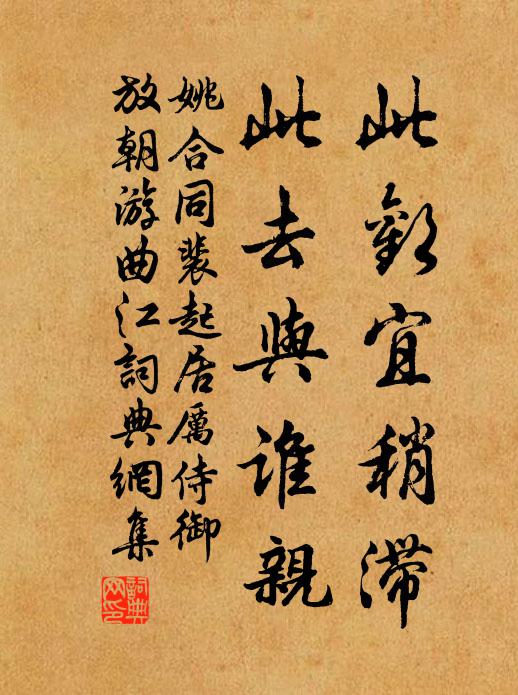 此歡宜稍滯
此去與誰親
姚合同裴起居厲侍御
放朝游曲江詞典網集
詞典网印